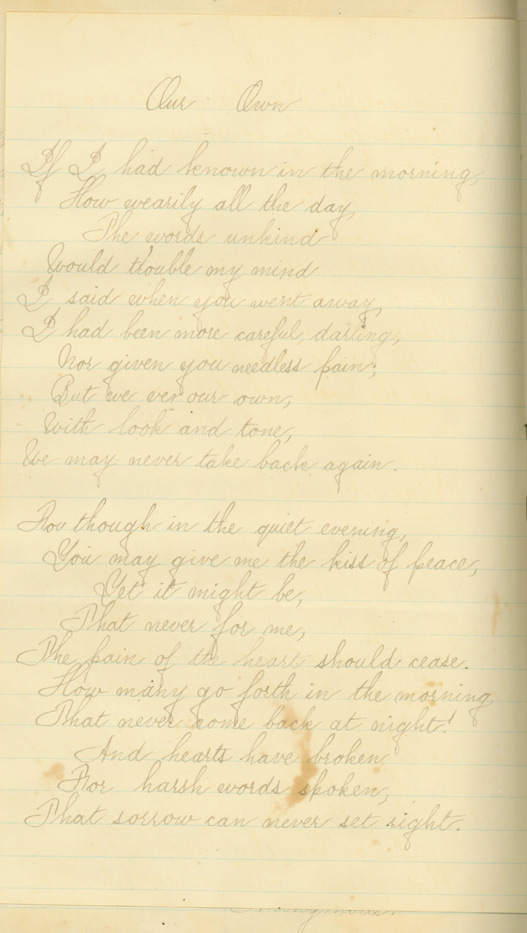 Our Own
If I had known in the morning,
How wearily all the day,
The words unkind
Would trouble my mind
I said when you went away,
I had been more careful, darling,
Nor given you needless pain;
But we ver our own,
With look and tone,
We may never take back again.
For though in the quiet evening,
You may give me the kiss of peace,
Yet it might be,
That never for me,
The pain of the heart should cease.
How many go forth in the morning
That never come back at night!
And hearts have broken
For harsh words spoken,
That sorrow can never set right.
Anonymous.